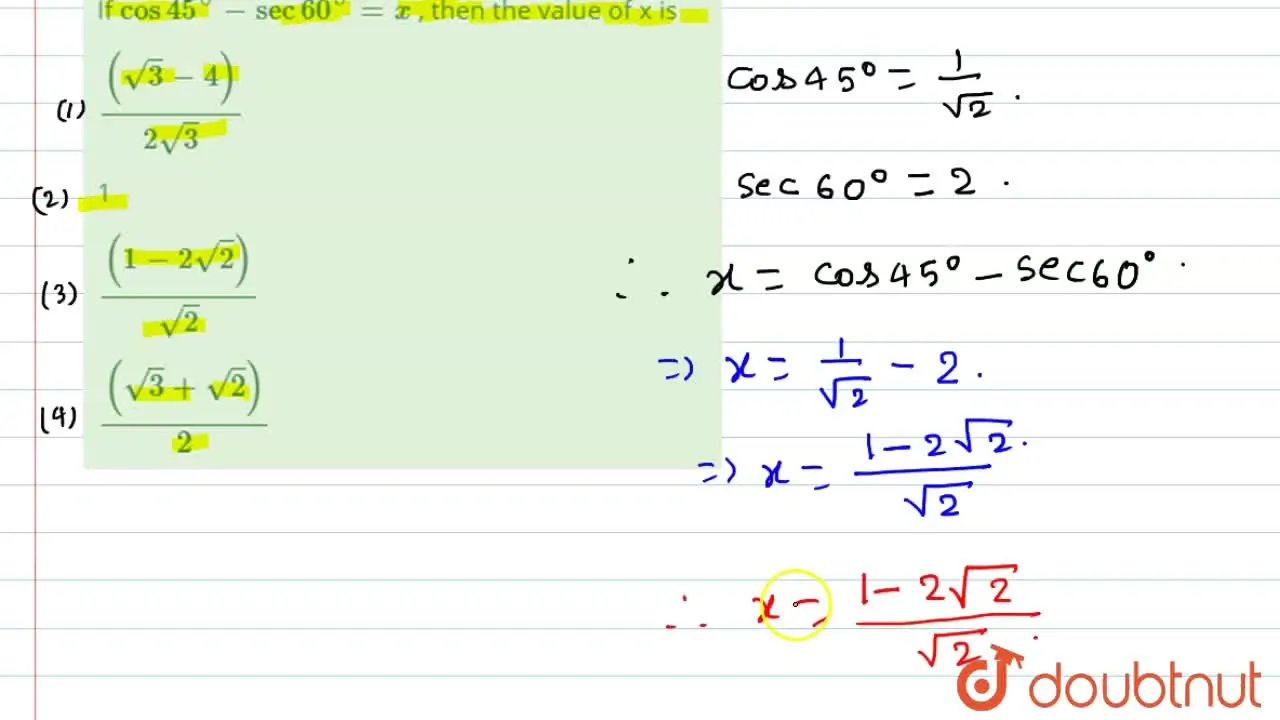 If cos 45° − sec 60° = x , then the value of x is
(1) (√3 − 4) / 2√3
(2) 1
(3) (1 − 2√2) / √2
(4) (√3 + √2) / 2
cos 45° = 1/√2 .
sec 60° = 2 .
∴ x = cos 45° − sec 60° .
⇒ x = 1/√2 − 2 .
⇒ x = (1 − 2√2) / √2 .
∴ x = (1 − 2√2) / √2 .
doubtnut